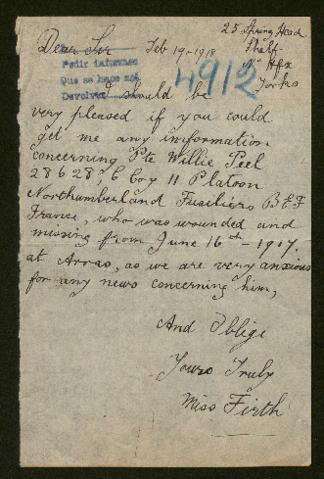 25 Spring Head
Shelf
Nr Hfx
Yorks
Dear Sir Feb 19-1918
Pedir informes
Que se hace
Devolver
4912
I should be
very pleased if you could
get me any imformation
concerning Pte Willie Peel
28628, C Coy 11 Platoon
Northumberland Fusiliers B.E.F
France, who was wounded and
missing from June 16th - 1917.
at Arras, as we are very anxious
for any news concerning him,
And Oblige
Yours Truly
Miss Firth